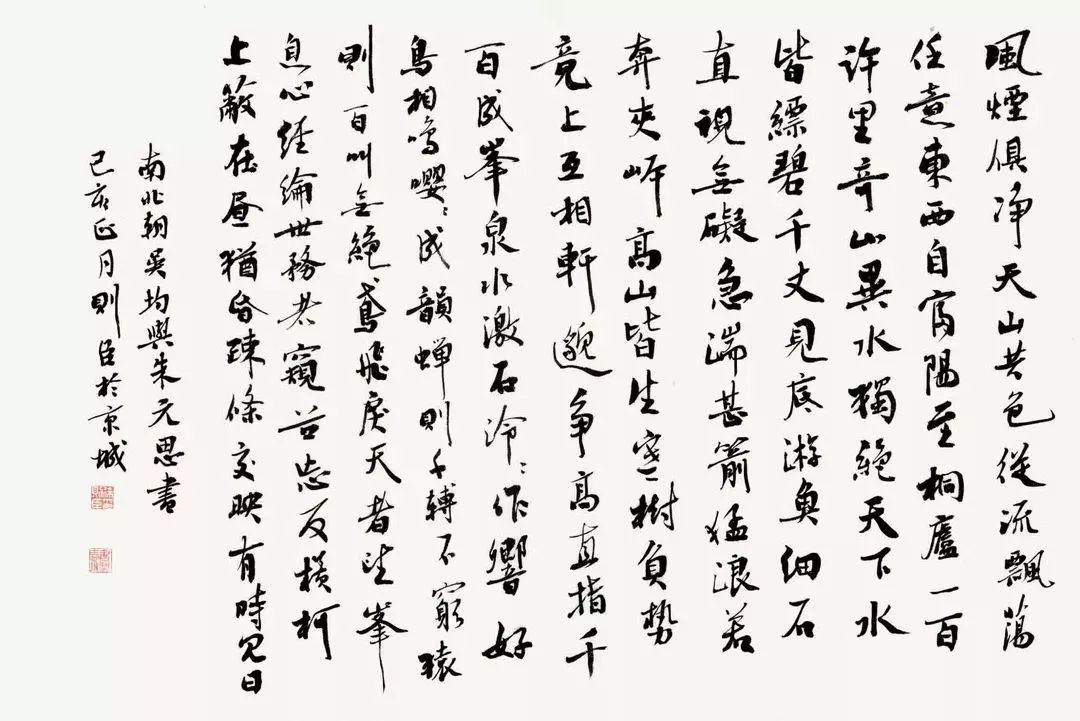 風煙俱净天山共色從流飄蕩
任意東西自富陽至桐廬一百
許里奇山異水獨絕天下水
皆縹碧千丈見底游魚細石
直視無礙急湍甚箭猛浪若
奔夾岸高山皆生寒樹負勢
競上互相軒邈爭高直指千
百成峯泉水激石泠泠作響好
鳥相鳴嚶嚶成韻蟬則千轉不窮猿
則百叫無絕鳶飛戾天者望峯
息心經綸世務者窺谷忘反橫柯
上蔽在晝猶昏疎條交映有時見日
南北朝吳均與朱元思書
己亥正月則臣於京城